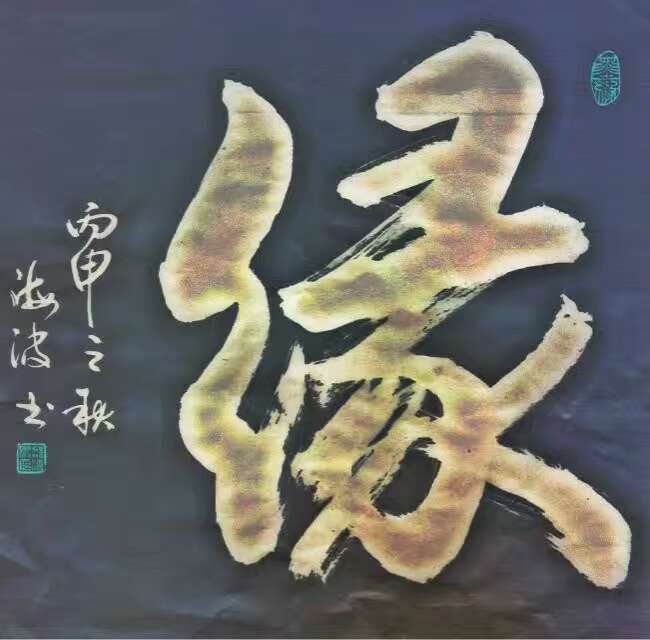 缘
丙申之秋
海波书